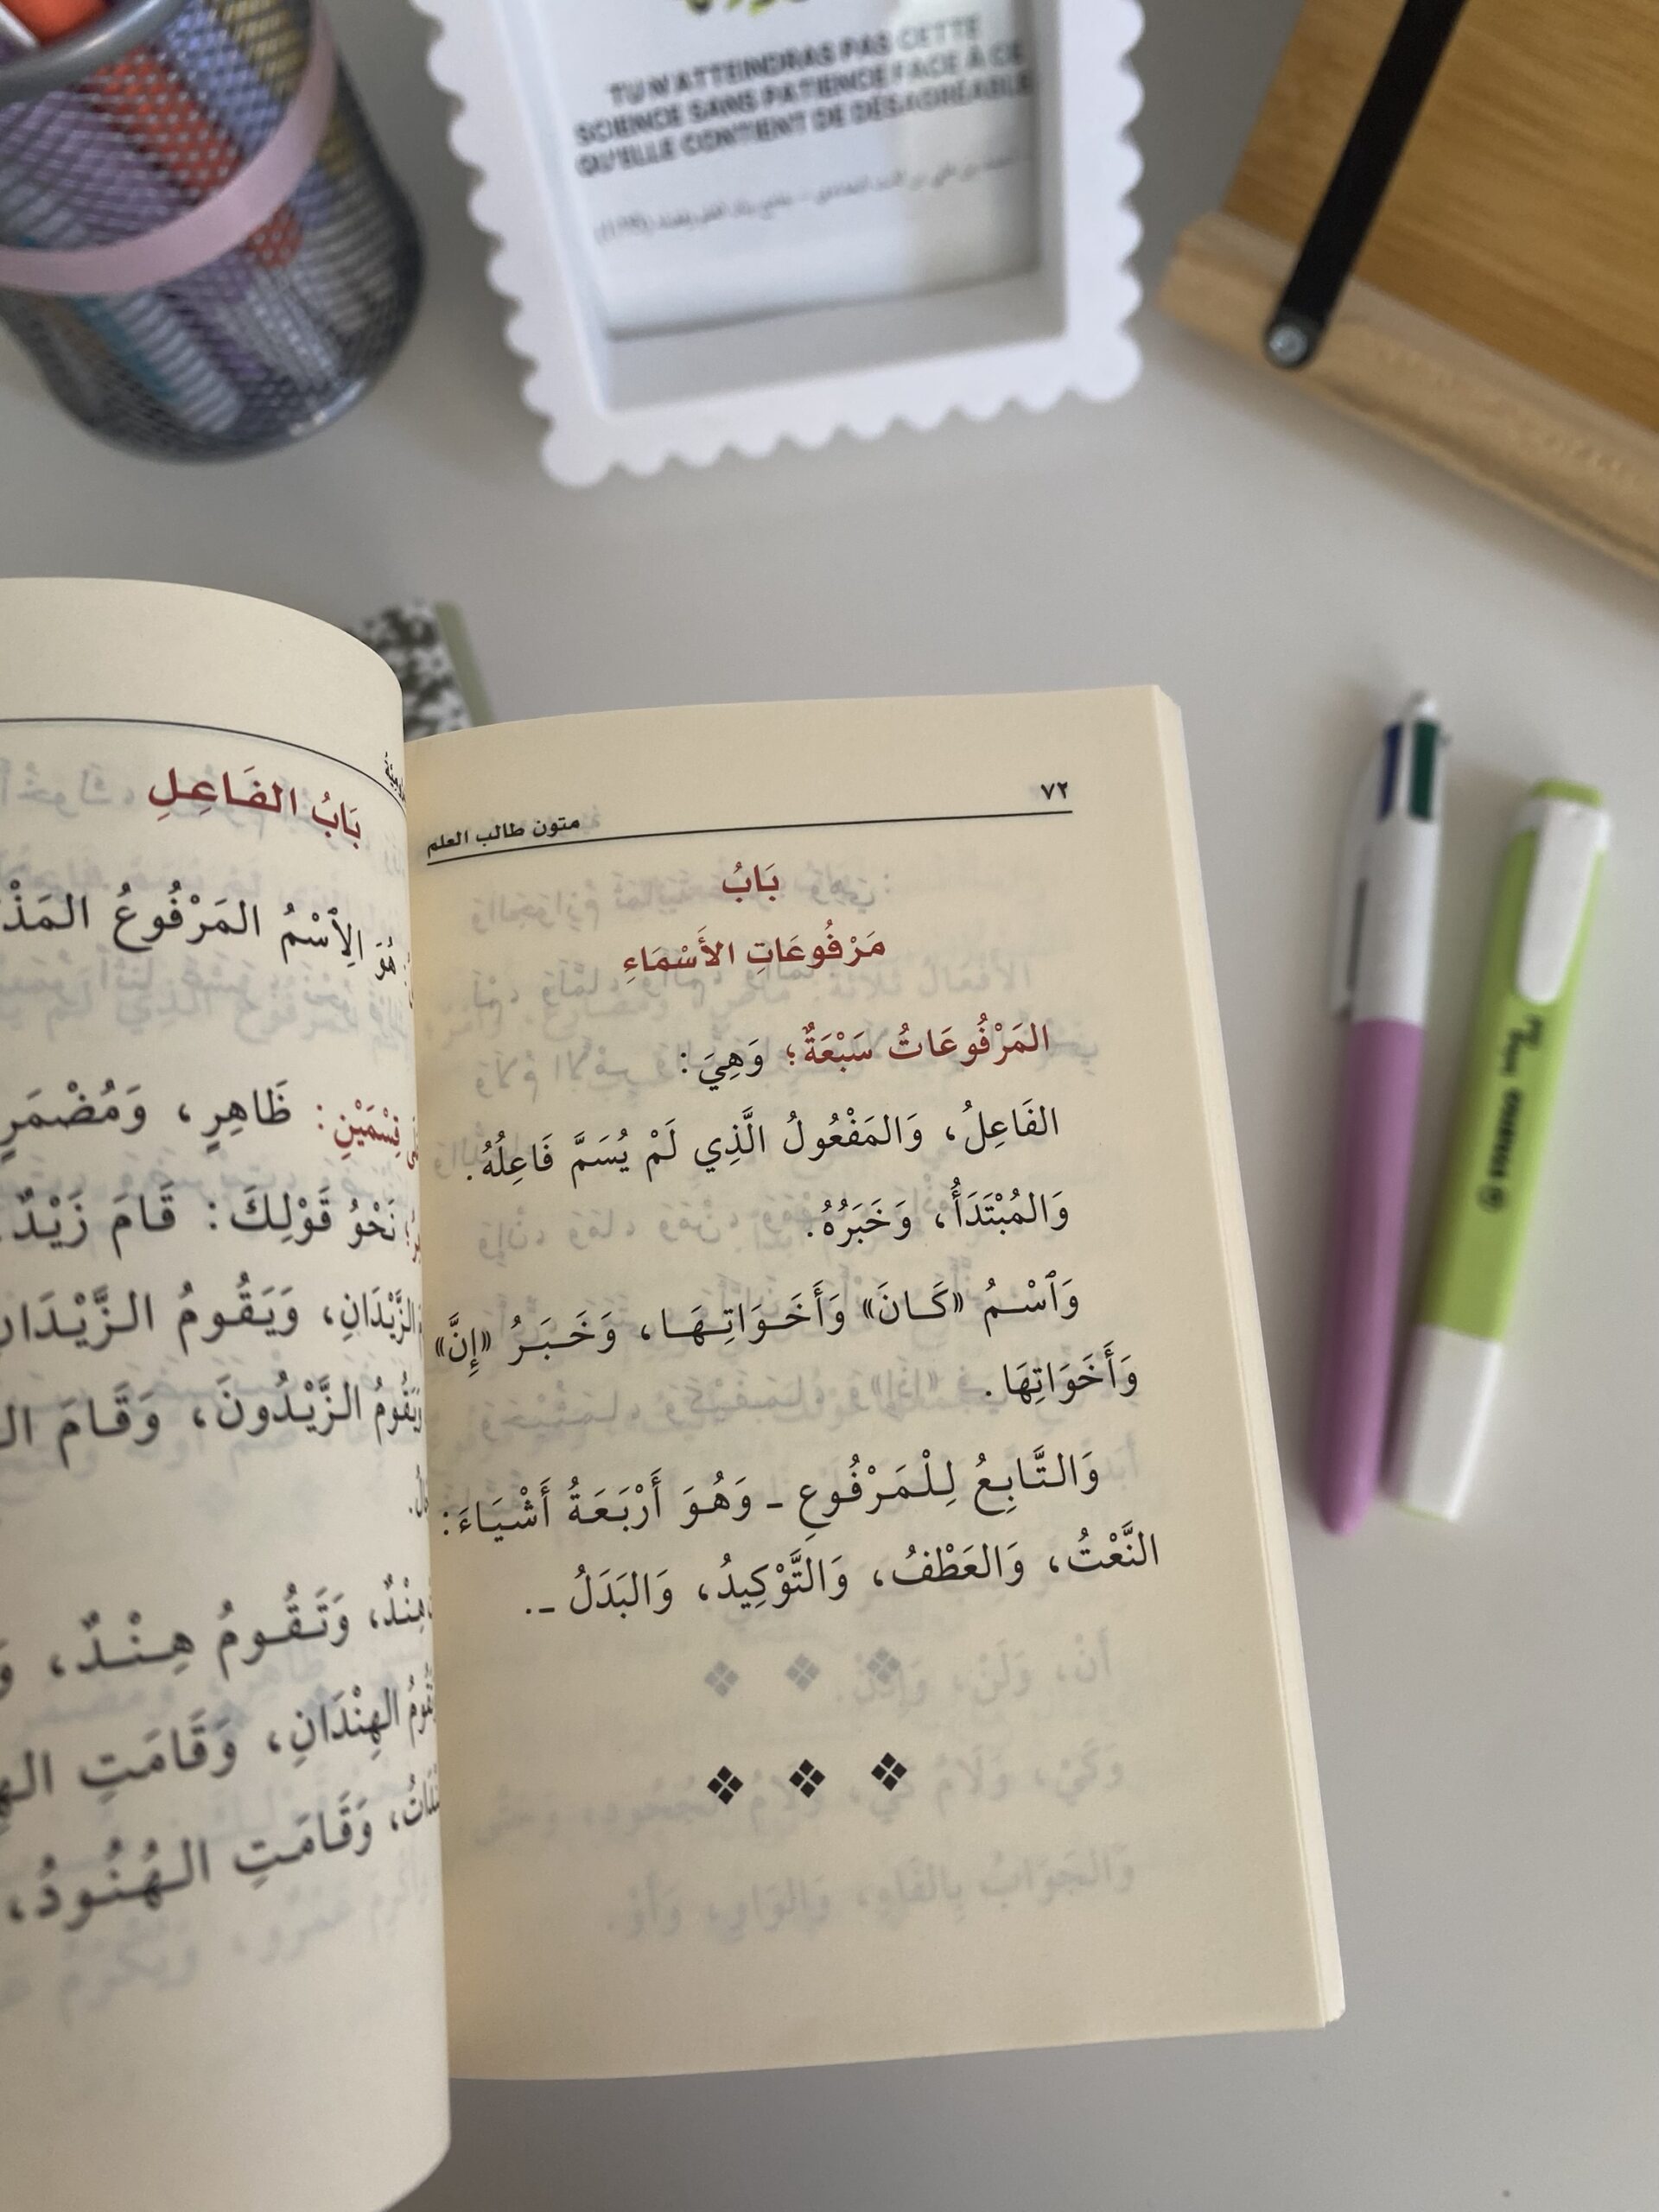 TU N'ATTEINDRAS PAS CETTE
SCIENCE SANS PATIENCE FACE À CE
QU'ELLE CONTIENT DE DÉSAGRÉABLE
٧٢
متون طالب العلم
بَابُ
مَرْفُوعَاتِ الأَسْمَاءِ
المَرْفُوعَاتُ سَبْعَةٌ؛ وَهِيَ:
الفَاعِلُ، وَالمَفْعُولُ الَّذِي لَمْ يُسَمَّ فَاعِلُهُ.
وَالمُبْتَدَأُ، وَخَبَرُهُ.
وَٱسْمُ «كَانَ» وَأَخَوَاتِهَا، وَخَبَرُ «إِنَّ»
وَأَخَوَاتِهَا.
وَالتَّابِعُ لِلْمَرْفُوعِ ـ وَهُوَ أَرْبَعَةُ أَشْيَاءَ:
النَّعْتُ، وَالعَطْفُ، وَالتَّوْكِيدُ، وَالبَدَلُ ـ.
بَابُ الفَاعِلِ
هُوَ الِٱسْمُ المَرْفُوعُ
قِسْمَيْنِ: ظَاهِرٍ، وَمُضْمَرٍ
نَحْوُ قَوْلِكَ: قَامَ زَيْدٌ
الزَّيْدَانِ، وَيَقُومُ الزَّيْدَانِ
وَيَقُومُ الزَّيْدُونَ، وَقَامَ
هِنْدٌ، وَتَقُومُ هِنْدٌ،
الهِنْدَانِ، وَقَامَتِ
وَقَامَتِ الهُنُودُ،
STABILO swing